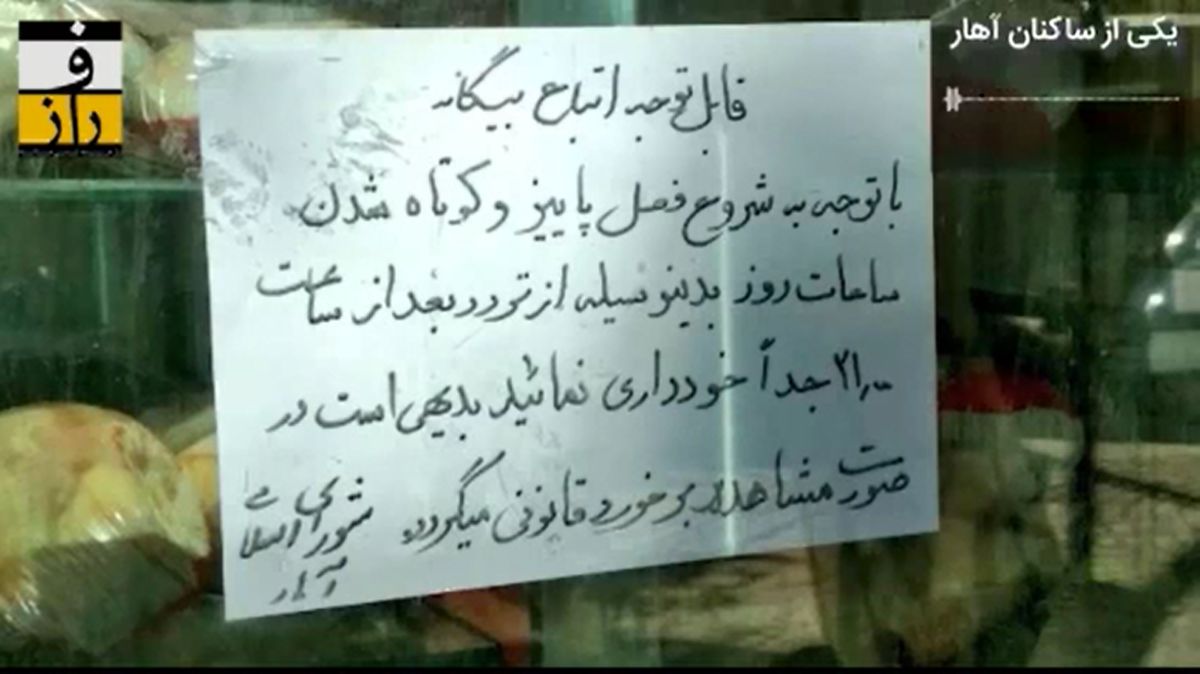 یکی از ساکنان آهار
فراز
قابل توجه اتباع بیگانه
با توجه به شروع فصل پاییز و کوتاه شدن
ساعات روز بدینوسیله از تردد بعد از ساعت
۲۱٫۰۰ جداً خودداری نمائید بدیهی است در
صورت مشاهده برخورد قانونی میگردد.
شورای اسلامی
آهار